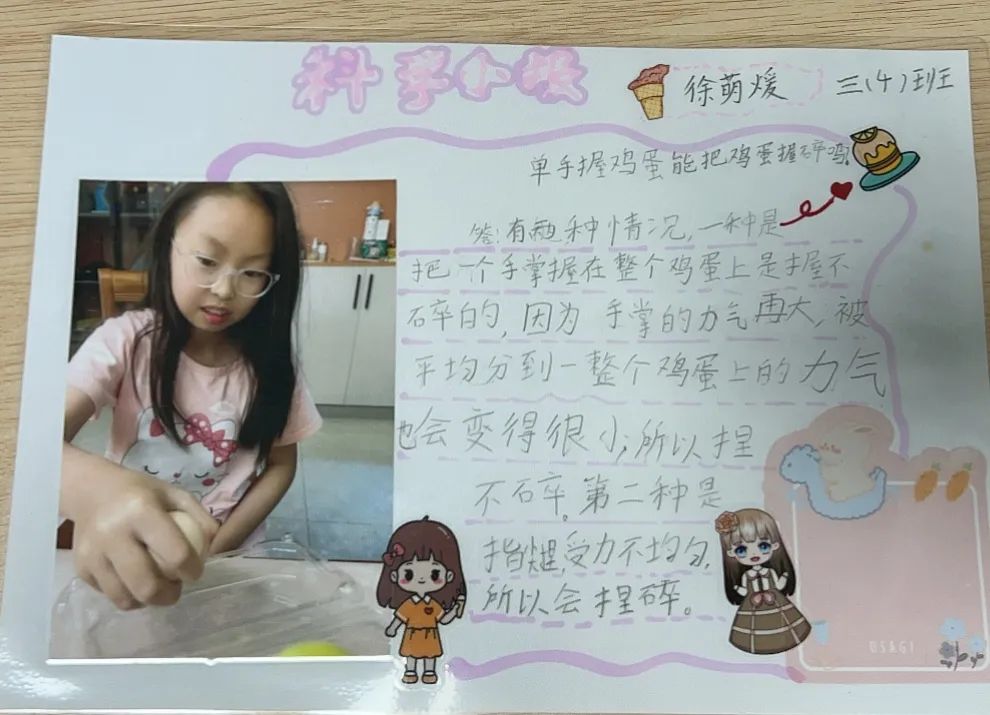 科学小报
徐萌煖 三(4)班
单手握鸡蛋能把鸡蛋握碎吗?
答:有两种情况,一种是
把一个手掌握在整个鸡蛋上是握不
碎的,因为手掌的力气再大,被
平均分到一整个鸡蛋上的力气
也会变得很小,所以捏
不碎。第二种是
指尖捏,受力不均匀,
所以会捏碎。
USAGI